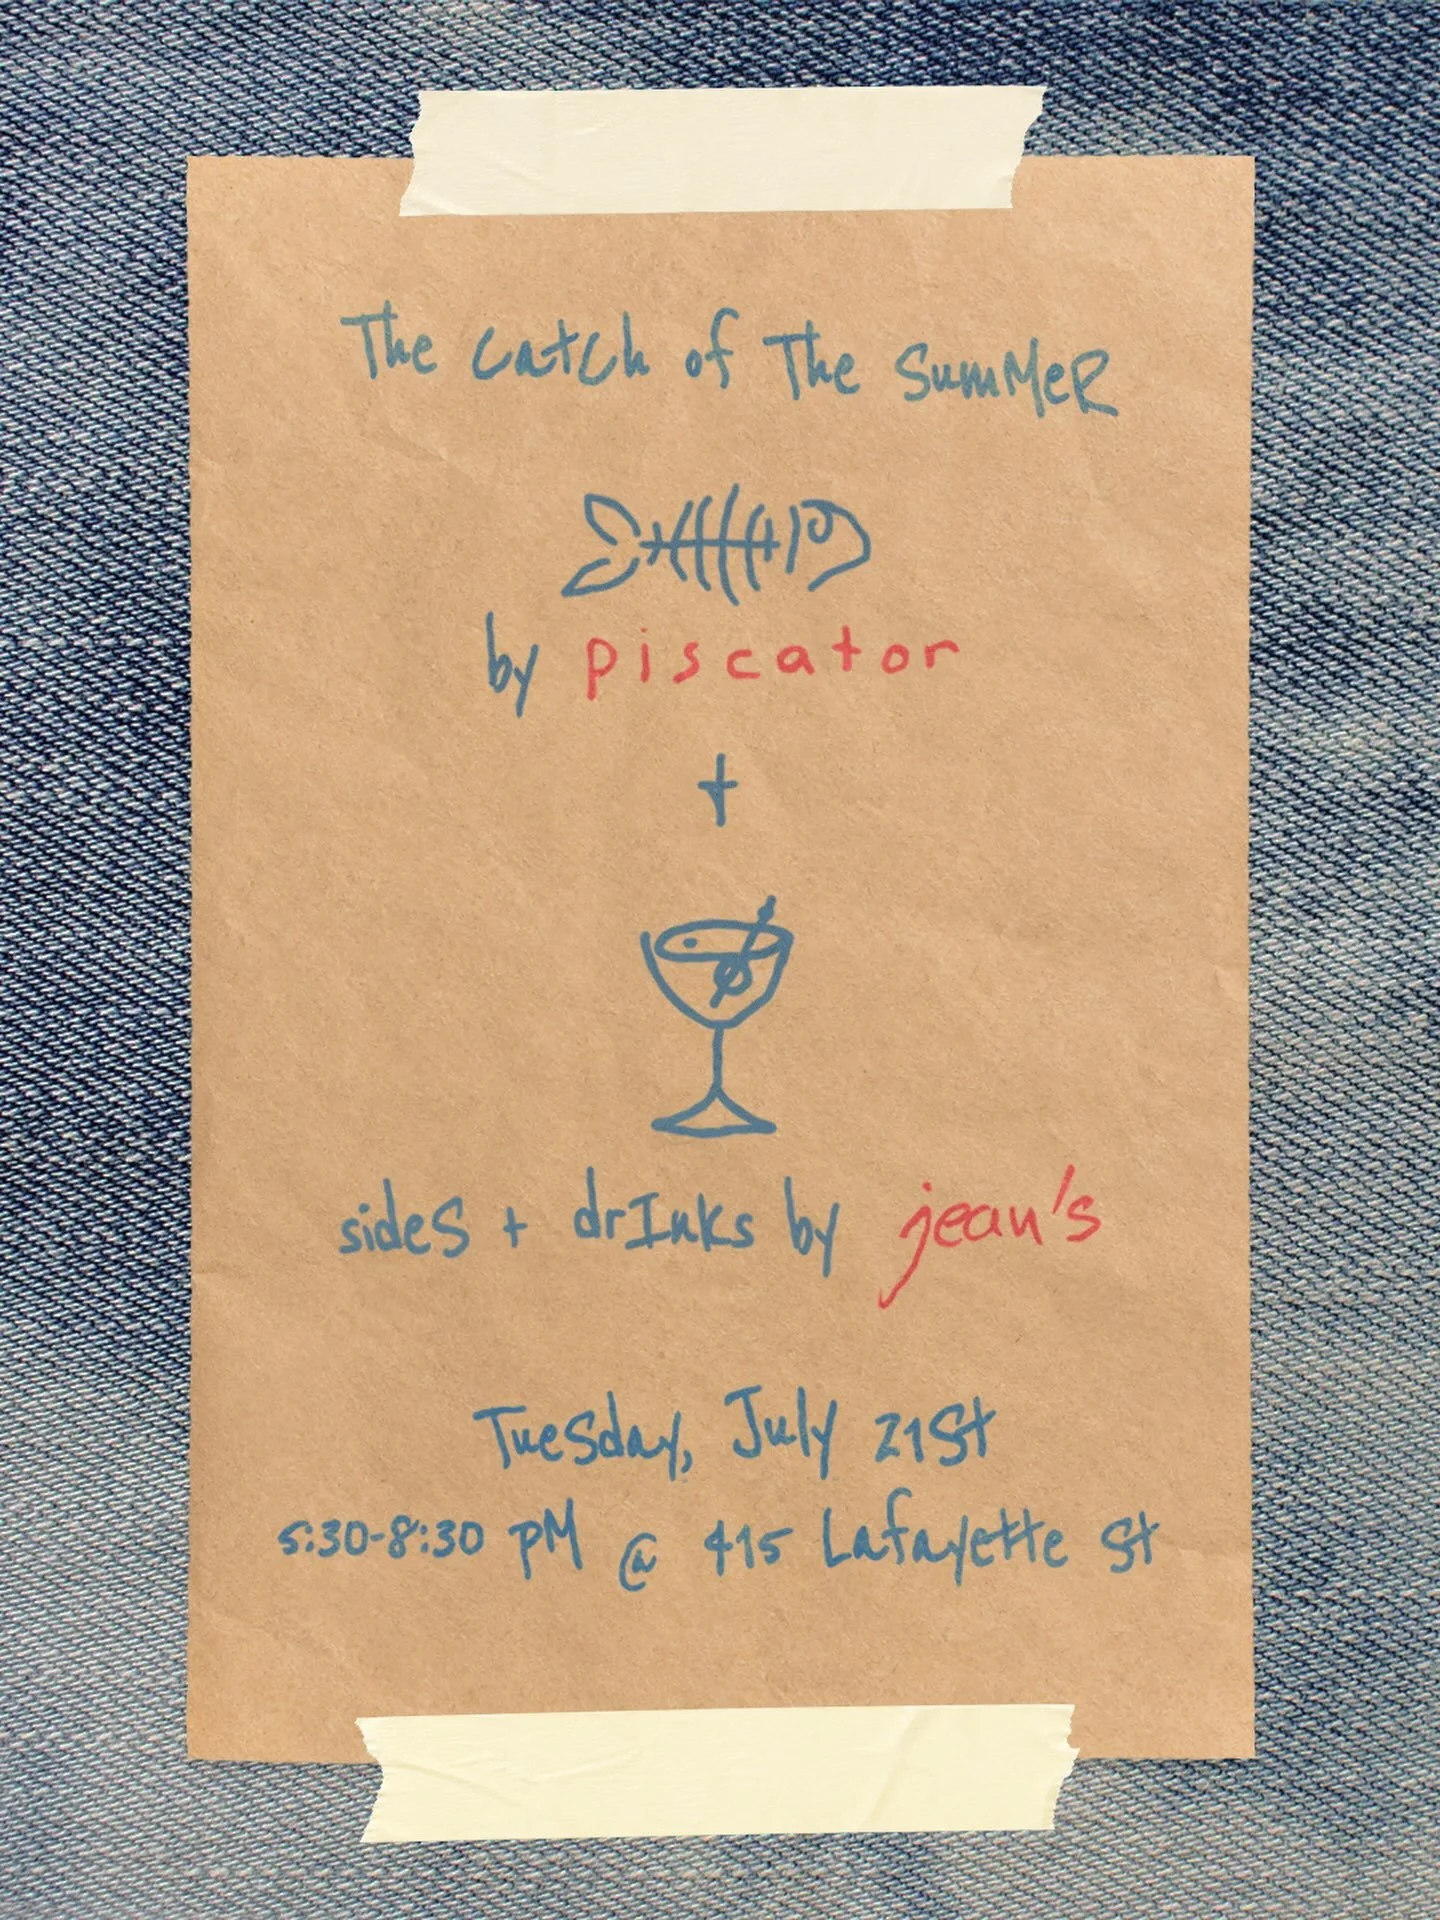 The catch of The SumMeR
by piscator
+
sides + drInks by jean's
Tuesday, July 21st
5:30-8:30 pM @ 415 Lafayette St